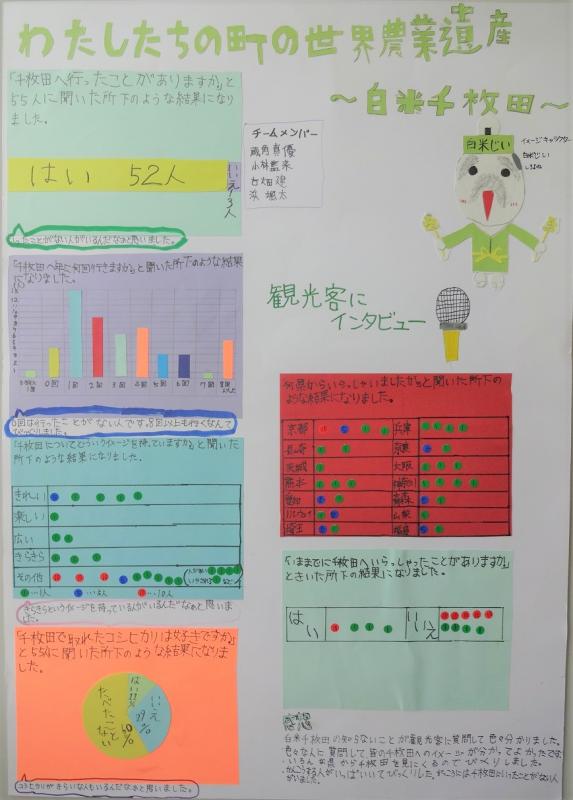 わたしたちの町の世界農業遺産
～白米千枚田～
「千枚田へ行ったことがありますか」と
55人に聞いた所下のような結果になり
ました。
はい 52人
いいえ3人
行ったことがない人がいるんだなぁと思いました。
チームメンバー
イメージキャラクター
白米じい
「千枚田へ年に何回行きますか」と聞いた所下のような結果
になりました。
0回 1回 2回 3回 4回 5回 6回 7回
0回は行ったことがない人です。8回以上も行くなんて
びっくりしました。
「千枚田についてどういうイメージを持っていますか」と聞いた
所下のような結果になりました。
きれい
楽しい
広い
きらきら
その他
…1人 …5人 …10人
きらきらというイメージを持っている人がいるんだなぁと思いま
した。
「千枚田で取れたコシヒカリは好きですか」
と55人に聞いた所下のような結果になりま
した。
はい
いいえ
たべたことない
コシヒカリがきらいな人もいるんだなぁと思いました。
観光客に
インタビュー
何県からいらっしゃいましたかと聞いた所下の
ような結果になりました。
京都 兵庫
長崎 奈良
茨城 大阪
熊本 神奈川
愛知 青森
山梨
埼玉 福島
「いままでに千枚田へいらっしゃったことがありますか」
ときいた所下の結果になりました。
はい いいえ
感想
白米千枚田の知らないことが観光客に質問して色々分かりました。
色々な人に質問して皆の千枚田へのイメージが分かってよかったです。
いろんな県から千枚田を見にくるのでびっくりしました。